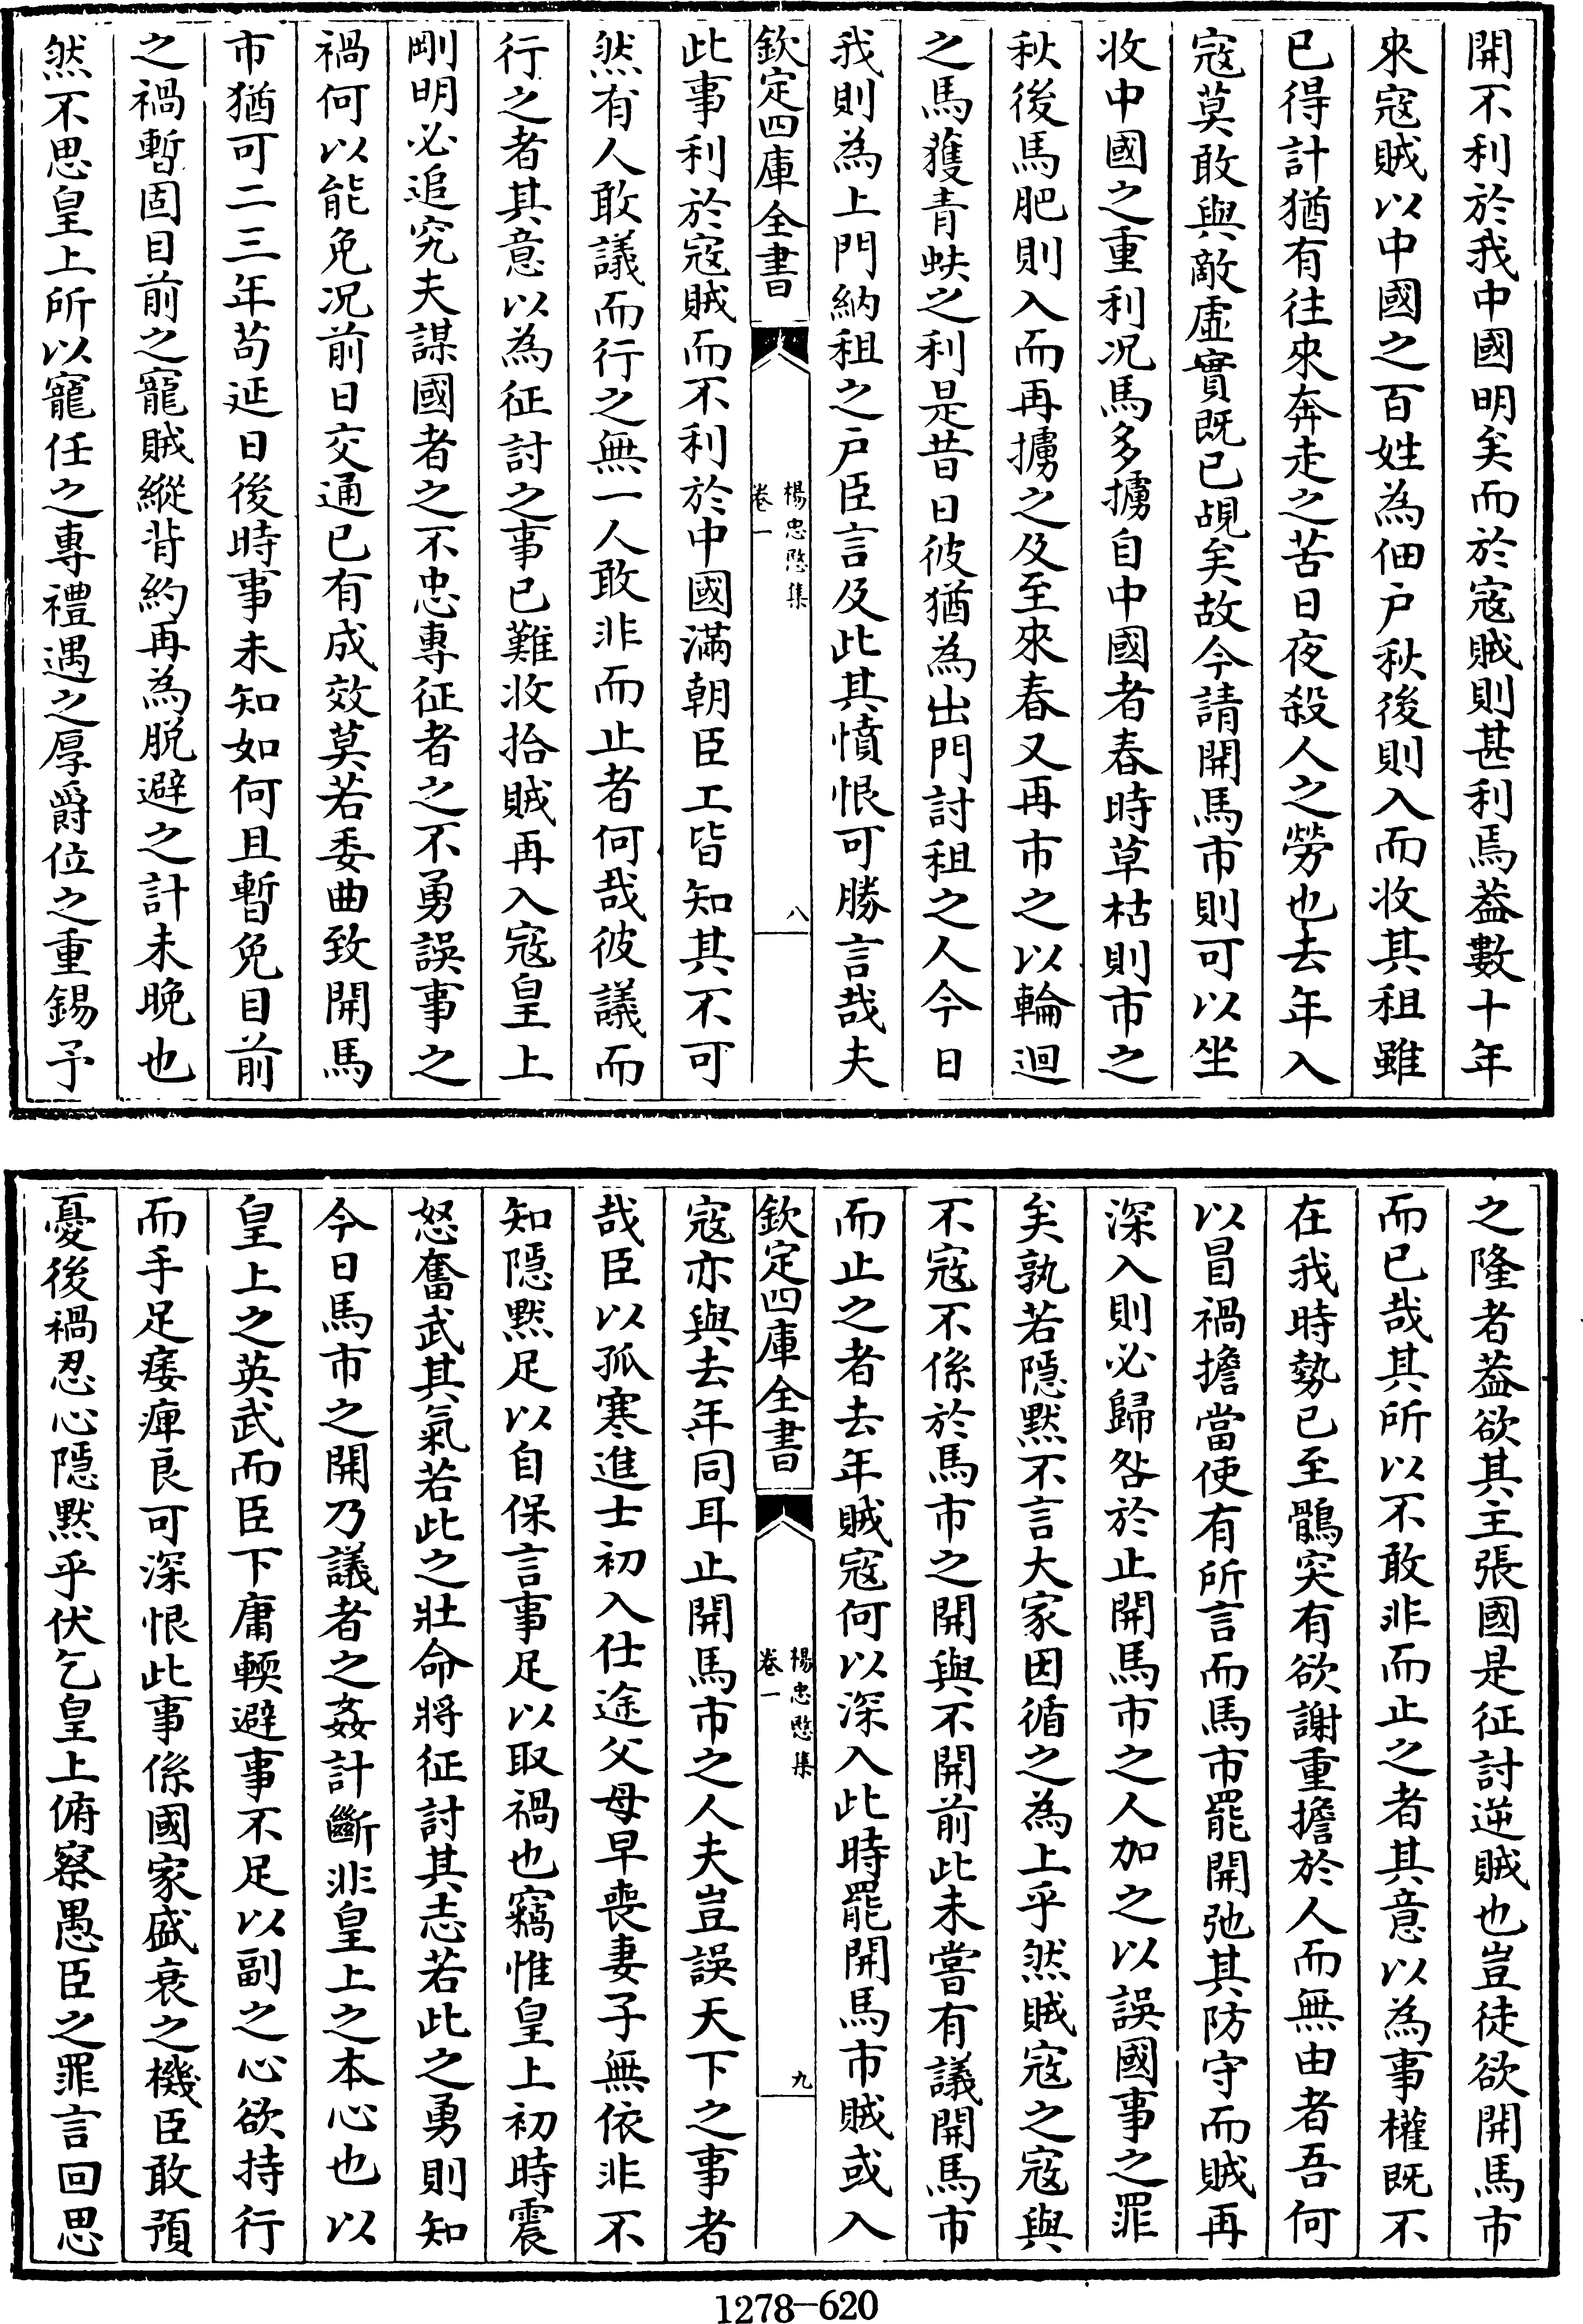 開不利於我中國明矣而於寇賊則甚利焉葢數十年
來寇賊以中國之百姓為佃户秋後則入而收其租雖
已得計猶有往來奔走之苦日夜殺人之勞也去年入
寇莫敢與敵虛實既已覘矣故今請開馬市則可以坐
收中國之重利况馬多擄自中國者春時草枯則市之
秋後馬肥則入而再擄之及至來春又再市之以輪迴
之馬獲青蚨之利是昔日彼猶為出門討租之人今日
我則為上門納租之户臣言及此其憤恨可勝言哉夫
欽定四庫全書
楊忠愍集
卷一
八
此事利於寇賊而不利於中國滿朝臣工皆知其不可
然有人敢議而行之無一人敢非而止者何哉彼議而
行之者其意以為征討之事已難收拾賊再入寇皇上
剛明必追究夫謀國者之不忠專征者之不勇誤事之
禍何以能免况前日交通已有成效莫若委曲致開馬
市猶可二三年苟延日後時事未知如何且暫免目前
之禍暫固目前之寵賊縱背約再為脱避之計未晚也
然不思皇上所以寵任之專禮遇之厚爵位之重錫予
之隆者葢欲其主張國是征討逆賊也豈徒欲開馬市
而已哉其所以不敢非而止之者其意以為事權既不
在我時勢已至鶻突有欲謝重擔於人而無由者吾何
以冒禍擔當使有所言而馬市罷開弛其防守而賊再
深入則必歸咎於止開馬市之人加之以誤國事之罪
矣孰若隱默不言大家因循之為上乎然賊寇之寇與
不寇不係於馬市之開與不開前此未嘗有議開馬市
而止之者去年賊寇何以深入此時罷開馬市賊或入
欽定四庫全書
楊忠愍集
卷一
九
寇亦與去年同耳止開馬市之人夫豈誤天下之事者
哉臣以孤寒進士初入仕途父母早喪妻子無依非不
知隱默足以自保言事足以取禍也竊惟皇上初時震
怒奮武其氣若此之壯命將征討其志若此之勇則知
今日馬市之開乃議者之姦計斷非皇上之本心也以
皇上之英武而臣下庸輭避事不足以副之心欲持行
而手足痿痺良可深恨此事係國家盛衰之機臣敢預
憂後禍忍心隱默乎伏乞皇上俯察愚臣之罪言回思
1278-620